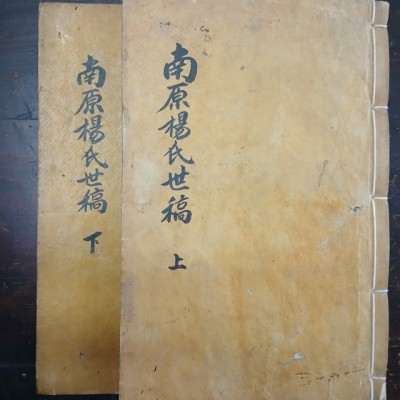 南原楊氏世稿 上
南原楊氏世稿 下